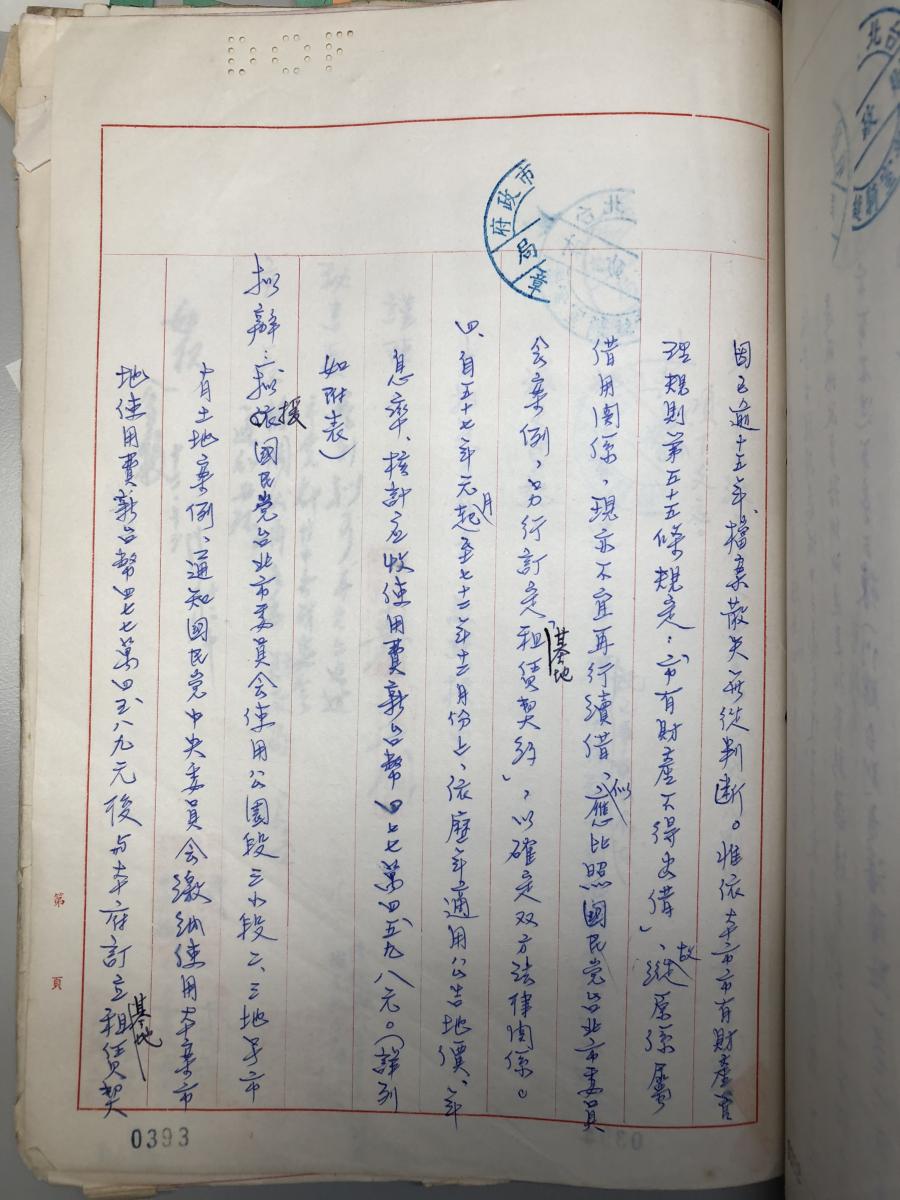 因已逾十五年、檔案散失無從判斷。惟依本市市有財產管
理規則第五十五條規定：「市有財產不得出借」、故縱原係屬
借用關係，現亦不宜再行續借、似應比照國民党台北市委員
会案例，另行訂定「基地租賃契約」，以確定双方法律関係。
四、自五十七年元月起至七十二年十二月份止、依歷年適用公告地價、年
息率、核計應收使用費新台幣四七七萬四五九八元。（詳列
如附表）
拟辦：擬援國民党台北市委員会使用公園段三小段二、三地号市
有土地案例、通知國民党中央委員会繳納使用本案市
地使用費新台幣四七七萬四五八九元後与本府訂立基地租賃契
市政府
局章
第 頁
0393